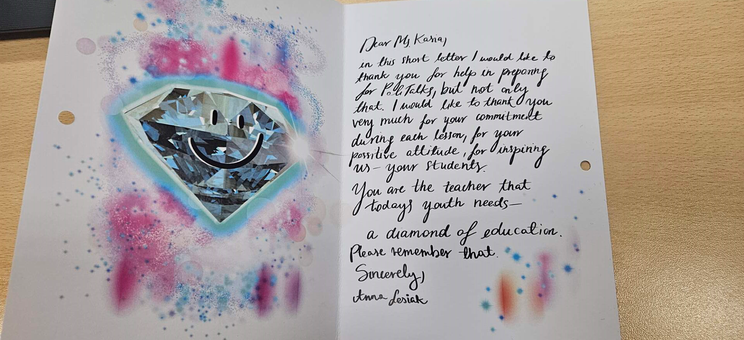 Dear Ms Kasia,
in this short letter I would like to
thank you for help in preparing
for PoliTalks, but not only
that. I would like to thank you
very much for your commitment
during each lesson, for your
possitive attitude, for inspiring
us – your students.
You are the teacher that
todays youth needs –
a diamond of education.
Please remember that.
Sincerely,
Anna Lesiak